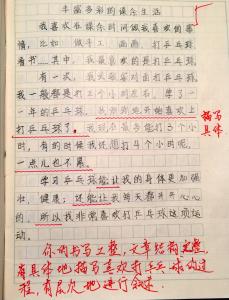 丰富多彩的课余生活
我喜欢在课余时间做我喜欢的事
情，比如：做手工、画画、打乒乓球、
看书……其中，我最喜欢的是打乒乓球。
有一次，我
我一个小时左右，学了一
一年的乒乓球，喜欢上
打乒乓球了。我现在最多能打3个小
时，有的时候我还想打4个小时呢，
一点儿也不累。
学习乒乓球能让我的身体更加强
壮、健康；还能让我每天都开开心心
的，所以我非常喜欢打乒乓球这项运
动。
描写
具体
你的书写工整，文章结构完整，
有具体地描写喜欢打乒乓球的过
程，有层次地进行叙述。